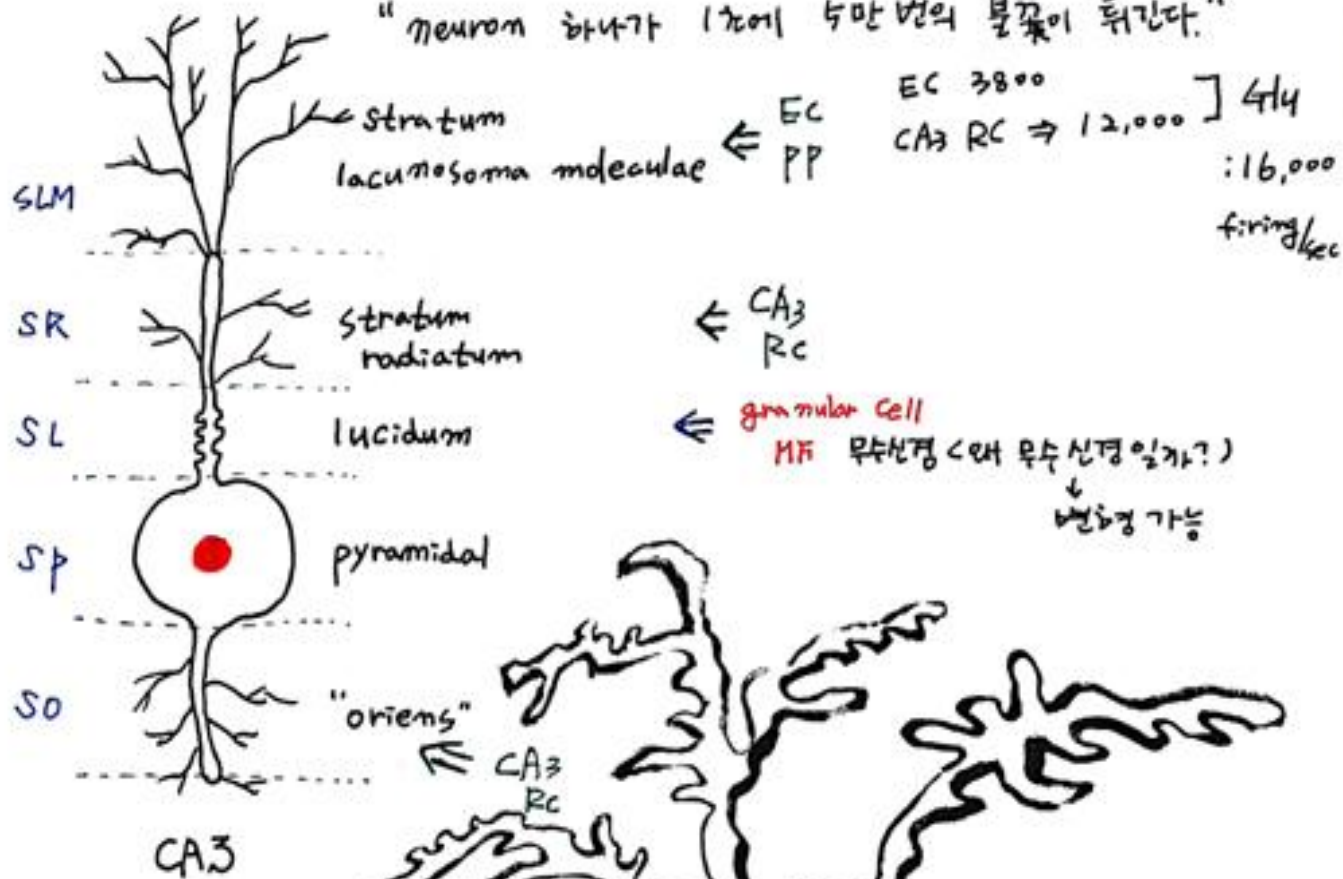 "neuron 하나가 1초에 5만번의 불꽃이 튀긴다."
EC 3800
CA3 RC ⇒ 12,000 ] Glu
:16,000
firing/sec
stratum
lacunosoma moleculae ⇐ EC PP
SLM
SR
stratum
radiatum ⇐ CA3 RC
SL lucidum ⇐ granular cell
MF 무수신경 <왜 무수신경일까?)
↓
변형 가능
Sp pyramidal
SO "oriens"
⇐ CA3
RC
CA3